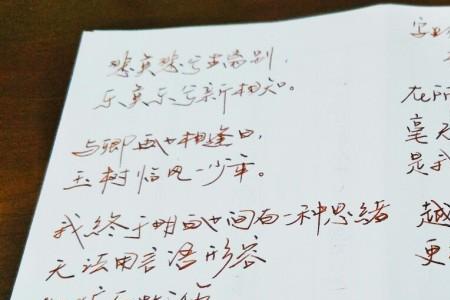 悲莫悲兮生离别,
乐莫乐兮新相知。
与卿再世相逢日,
玉树临风一少年。
我终于明白世间有一种思绪
无法用言语形容
在所
毫无
是我
越
更